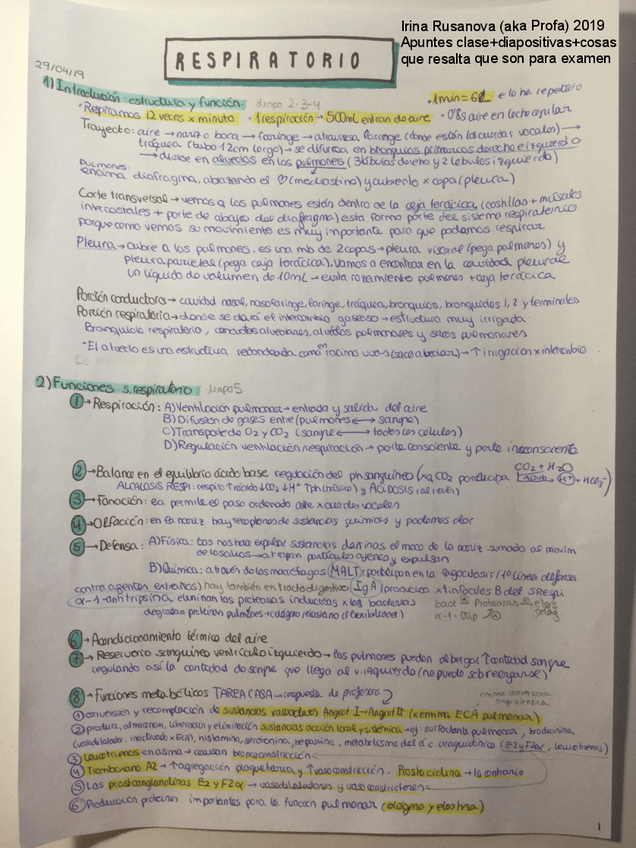 Irina Rusanova (aka Profa) 2019
Apuntes clase+diapositivas+cosas
que resalta que son para examen
RESPIRATORIO
29/04/19
1) Introducción: estructura y función. diapo 2-3-4
· 1min = 6L e lo ha repetido
· Respiramos 12 veces x minuto · 1 respiración → 500mL entran de aire · 0'8s aire en lecho capilar
Trayecto: aire → nariz o boca → faringe → atraviesa laringe (donde están las cuerdas vocales) →
tráquea (tubo 12cm largo) → se bifurca en bronquios primarios derecho e izquierdo
→ divide en alveolos en los pulmones (3 lóbulos dcho y 2 lóbulos izquierdo)
pulmones:
encima diafragma, abrazando el ♡ (mediastino) y cubierto x capa (pleura)
Corte transversal → vemos q los pulmones están dentro de la caja torácica (costillas + músculos
intercostales + parte de abajo del diafragma) esta forma parte del sistema respiratorio
porque como vemos su movimiento es muy importante para que podamos respirar
Pleura → cubre a los pulmones, es una mb de 2 capas → pleura visceral (pega pulmones) y
pleura parietal (pega caja torácica). Vamos a encontrar en la cavidad pleural
un líquido de volumen de 10mL → evita rozamiento pulmones + caja torácica
Porción conductora → cavidad nasal, nasofaringe, laringe, tráquea, bronquios, bronquiolos 1, 2 y terminales
Porción respiratoria → donde se dará el intercambio gaseoso → estructura muy irrigada.
Branquiolo respiratorio, conductos alveolares, alveolos pulmonares y sacos pulmonares
· El alveolo es una estructura redondeada como en racimo uvas (saco alveolar) → ↑ irrigación x intercambio
2) Funciones s. respiratorio diapo 5
1 → Respiración: A) Ventilación pulmonar → entrada y salida del aire
B) Difusión de gases entre (pulmones ↔ sangre)
C) Transporte de O2 y CO2 (sangre ↔ todas las células)
D) Regulación ventilación/respiración → parte consciente y parte inconsciente
2 → Balance en el equilibrio ácido base regulación del ph sanguíneo (xq CO2 participa CO2 + H2O H+ + HCO3-)
ALCALOSIS RESPI: respiro ↑ rápido ↓CO2 ↓H+ ↑ph (básico) y ACIDOSIS (al revés)
3 → Fonación: ea permite el paso ordenado aire x cuerdas vocales
4 → Olfacción: en la nariz hay receptores de sustancias químicas y podemos oler
5 → Defensa: A) Física: tos nos hace expulsar sustancias dañinas el moco de la nariz sumado al movim
de los cilios → atrapan partículas ajenas y expulsan
B) Química: a través de los macrófagos (MALT) participan en la fagocitosis (1ª línea defensa
contra agentes extraños) hay también en tracto digestivo (IgA) producida x linfocitos B del
α-1-antitripsina eliminan las proteasas inducidas x las bacterias
degradan proteínas pulmones → colágeno/elastano (flexibilidad)
6 → Acondicionamiento térmico del aire
7 → Reservorio sanguíneo ventrículo izquierdo → los pulmones pueden albergar ↑ cantidad sangre
regulando así la cantidad de sangre que llega al v. izquierdo (no puedo sobreesforzarse)
8 → Funciones metabólicas TAREA CASA → respuesta de profesora
1 conversión y recompilación de sustancias vasoactivas Angiot I → Angiot II (x enzima ECA pulmonar)
2 produce, almacenan, liberación y eliminación sustancias acción local y sistémica → ej: surfactante pulmonar, bradicinina,
(vasodilatador, inactivada x ECA), histamina, serotonina, heparina, metabolismo del ác araquidónico (E2 y F2α, leucotrienos)
3 Leucotrienos en asma → causan broncoconstricción
4 Tromboxano A2 → ↑ agregación plaquetaria y ↑ vasoconstricción. Prostaciclina → lo contrario
5 Las prostanglandinas E2 y F2α → vasodilatadores y vasoconstrictores
6 Producción proteínas importantes para la función pulmonar (colágeno y elastina)
1